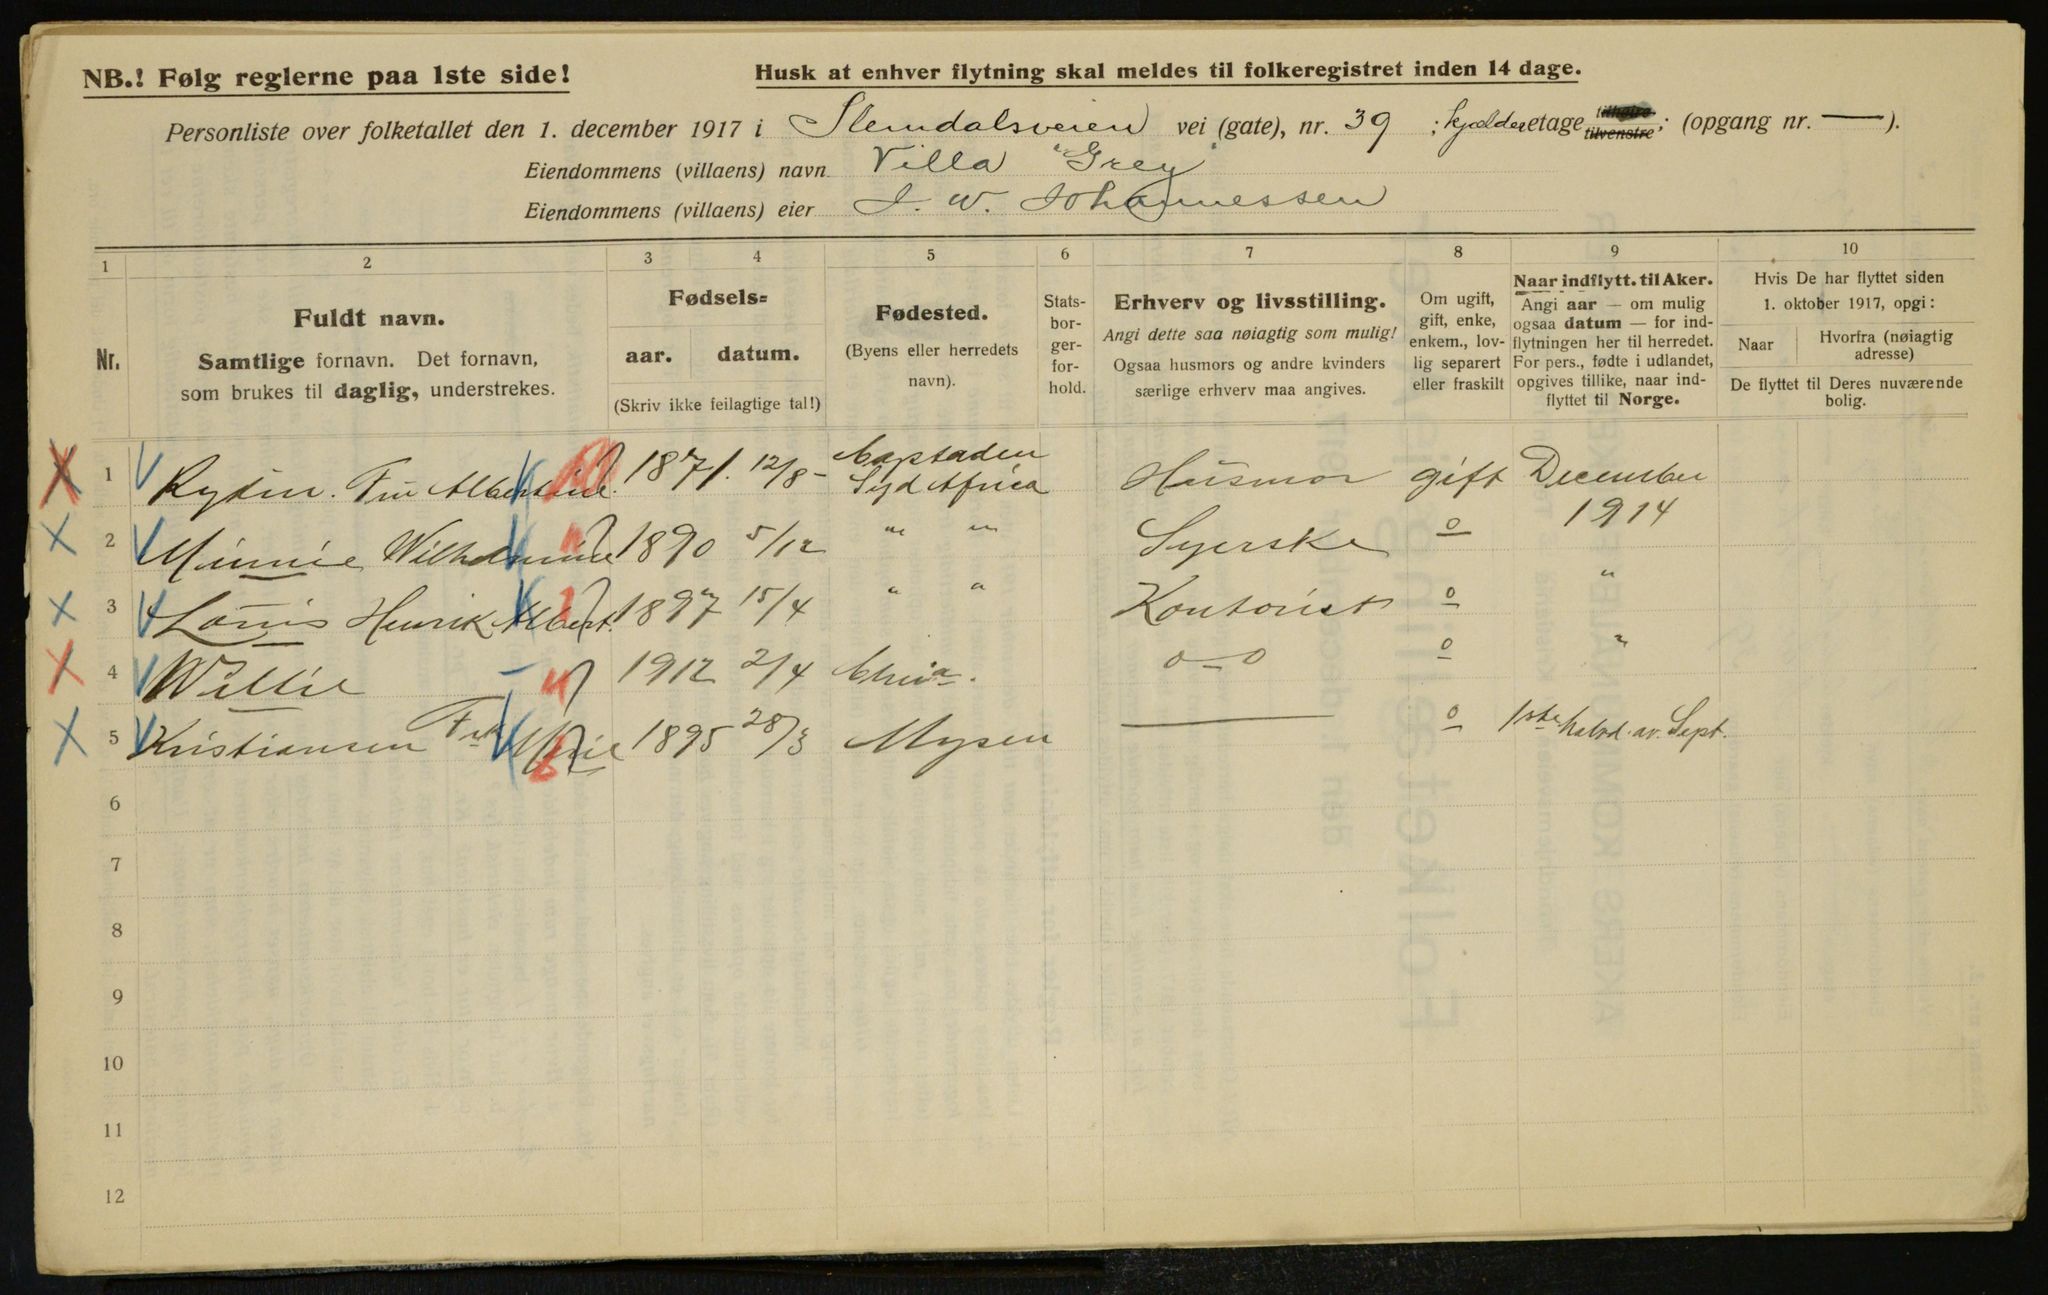 NB.! Følg reglerne paa 1ste side!
Husk at enhver flytning skal meldes til folkeregistret inden 14 dage.
Personliste over folketallet den 1. december 1917 i Slemdalsveien vei (gate), nr. 39 ; kjælder etage tilhøire tilvenstre ; (opgang nr. — ).
Eiendommens (villaens) navn Villa "Grey"
Eiendommens (villaens) eier J. W. Johannessen
1 2 3 4 5 6 7 8 9 10
Nr.
Fuldt navn.
Samtlige fornavn. Det fornavn,
som brukes til daglig, understrekes.
Fødsels=
aar. datum.
(Skriv ikke feilagtige tal!)
Fødested.
(Byens eller herredets
navn).
Stats-
bor-
ger-
for-
hold.
Erhverv og livsstilling.
Angi dette saa nøiagtig som mulig!
Ogsaa husmors og andre kvinders
særlige erhverv maa angives.
Om ugift,
gift, enke,
enkem., lov-
lig separert
eller fraskilt
Naar indflytt. til Aker.
Angi aar — om mulig
ogsaa datum — for ind-
flytningen her til herredet.
For pers., fødte i udlandet,
opgives tillike, naar ind-
flyttet til Norge.
Hvis De har flyttet siden
1. oktober 1917, opgi:
Naar
Hvorfra (nøiagtig
adresse)
De flyttet til Deres nuværende
bolig.
1 Rydin. Fru Albertine. 1871. 12/8 - Capstaden Syd Africa Husmor gift December 1914
2 Minnie Wilhelmine 1890 5/12 " " Syerske o "
3 Louis Henrik Albert. 1897 15/4 " " Kontorist o "
4 Willie 1912 2/4 Chria. o-o o
5 Kristiansen Frk Marie 1895 28/3 Mysen — o 1ste halvd. av. Sept.
6
7
8
9
10
11
12